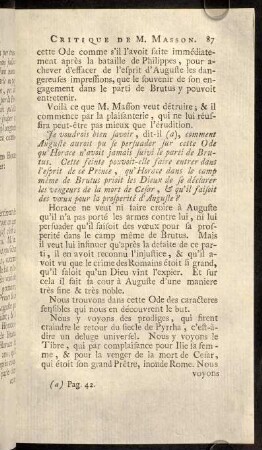 CRITIQUE DE M. MASSON. 87
cette Ode comme s'il l'avoit faite immédiate-
ment après la bataille de Philippes, pour a-
chever d'effacer de l'esprit d'Auguste les dan-
gereuses impressions, que le souvenir de son en-
gagement dans le parti de Brutus y pouvoit
entretenir.
Voilà ce que M. Masson veut détruire; & il
commence par la plaisanterie, qui ne lui réus-
sira peut-être pas mieux que l'érudition.
Je voudrois bien savoir, dit-il (a), comment
Auguste auroit pu se persuader sur cette Ode
qu'Horace n'avoit jamais suivi le parti de Bru-
tus. Cette feinte pouvoit-elle faire entrer dans
l'esprit de ce Prince, qu'Horace dans le camp
même de Brutus prioit les Dieux de se déclarer
les vengeurs de la mort de Cesar, & qu'il faisoit
des vœux pour la prosperité d'Auguste?
Horace ne veut ni faire croire à Auguste
qu'il n'a pas porté les armes contre lui, ni lui
persuader qu'il faisoit des vœux pour sa pros-
perité dans le camp même de Brutus. Mais
il veut lui insinuer qu'après la defaite de ce par-
ti, il en avoit reconnu l'injustice, & qu'il a-
voit vu que le crime des Romains étoit si grand,
qu'il faloit qu'un Dieu vint l'expier. Et sur
cela il fait sa cour à Auguste d'une maniere
très fine & très noble.
Nous trouvons dans cette Ode des caractères
sensibles qui nous en découvrent le but.
Nous y voyons des prodiges, qui firent
craindre le retour du siecle de Pyrrha, c'est-à-
dire un deluge universel. Nous y voyons le
Tibre, qui par complaisance pour Ilie sa fem-
me, & pour la venger de la mort de Cesar,
qui étoit son grand Prêtre, inonde Rome. Nous
voyons
(a) Pag. 42.